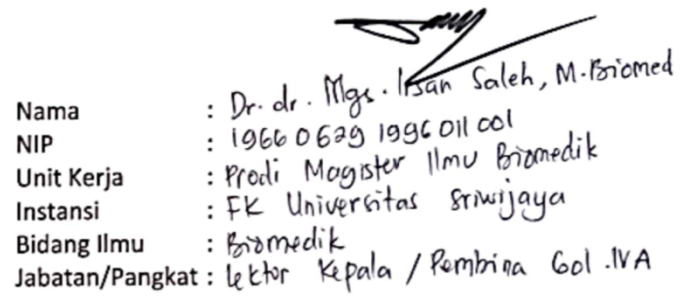 Nama : Dr. dr. Mgs. Irsan Saleh, M.Biomed
NIP : 19660629 1996 011 001
Unit Kerja : Prodi Magister Ilmu Biomedik
Instansi : FK Universitas Sriwijaya
Bidang Ilmu : Biomedik
Jabatan/Pangkat : Lektor Kepala / Pembina Gol .IVA